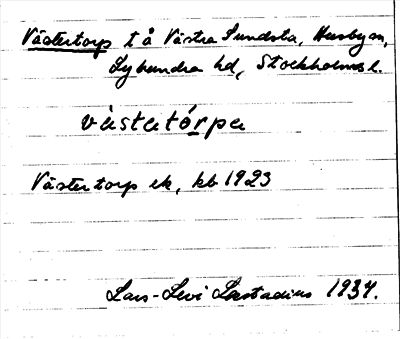 Västertorp t å Västra Sundsta, Husby sn,
Lyhundra hd, Stockholms l.
västatórpa
Västertorp ek, kb 1923
Lars-Levi Læstadius 1934.